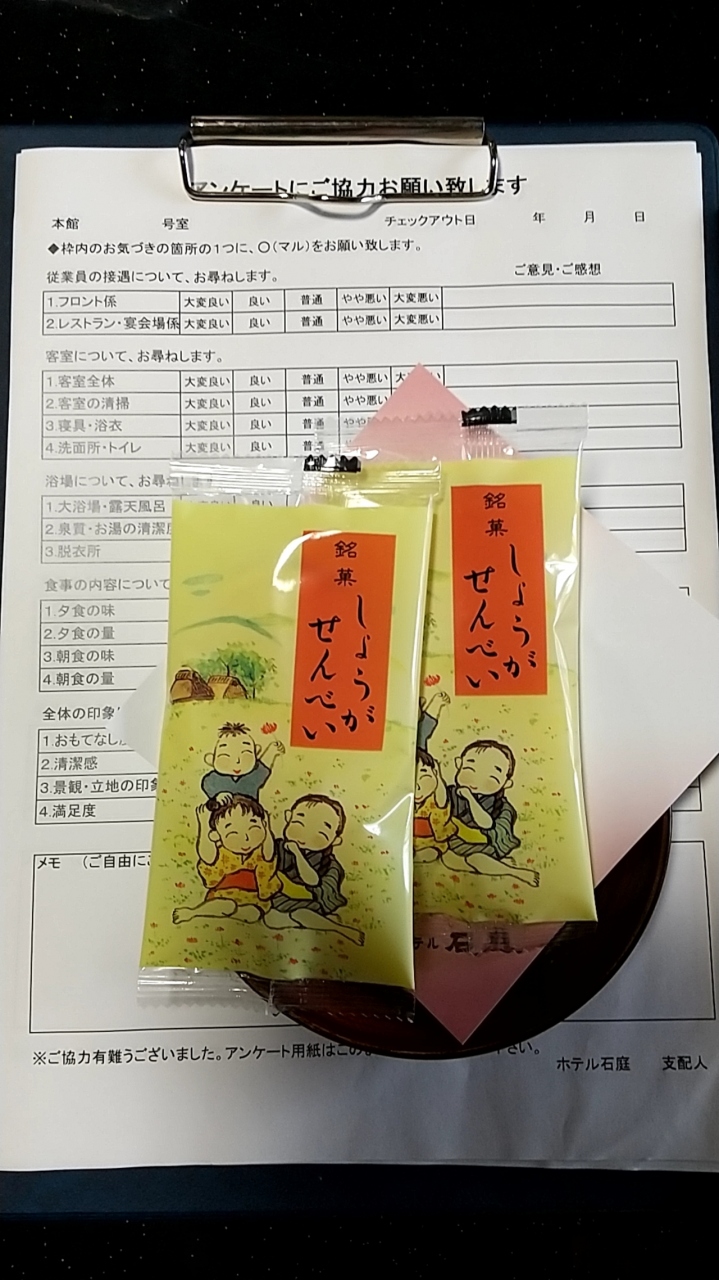 アンケートにご協力お願い致します
本館 号室 チェックアウト日 年 月 日
◆枠内のお気づきの箇所の1つに、〇(マル)をお願い致します。
従業員の接遇について、お尋ねします。 ご意見・ご感想
1.フロント係 大変良い 良い 普通 やや悪い 大変悪い
2.レストラン・宴会場係 大変良い 良い 普通 やや悪い 大変悪い
客室について、お尋ねします。
1.客室全体 大変良い 良い 普通 やや悪い 大
2.客室の清掃 大変良い 良い 普通 やや悪い
3.寝具・浴衣 大変良い 良い 普通 やや
4.洗面所・トイレ 大変良い 良い 普
浴場について、お尋ね
1.大浴場・露天風呂
2.泉質・お湯の清潔
3.脱衣所
食事の内容につい
1.夕食の味
2.夕食の量
3.朝食の味
4.朝食の量
全体の印象
1.おもてなし
2.清潔感
3.景観・立地の印象
4.満足度
メモ (ご自由に
※ご協力有難うございました。アンケート用紙はこの
さい。
ホテル石庭 支配人
銘菓
しょうが
せんべい
銘菓
しょうが
せんべい
テル 石庭